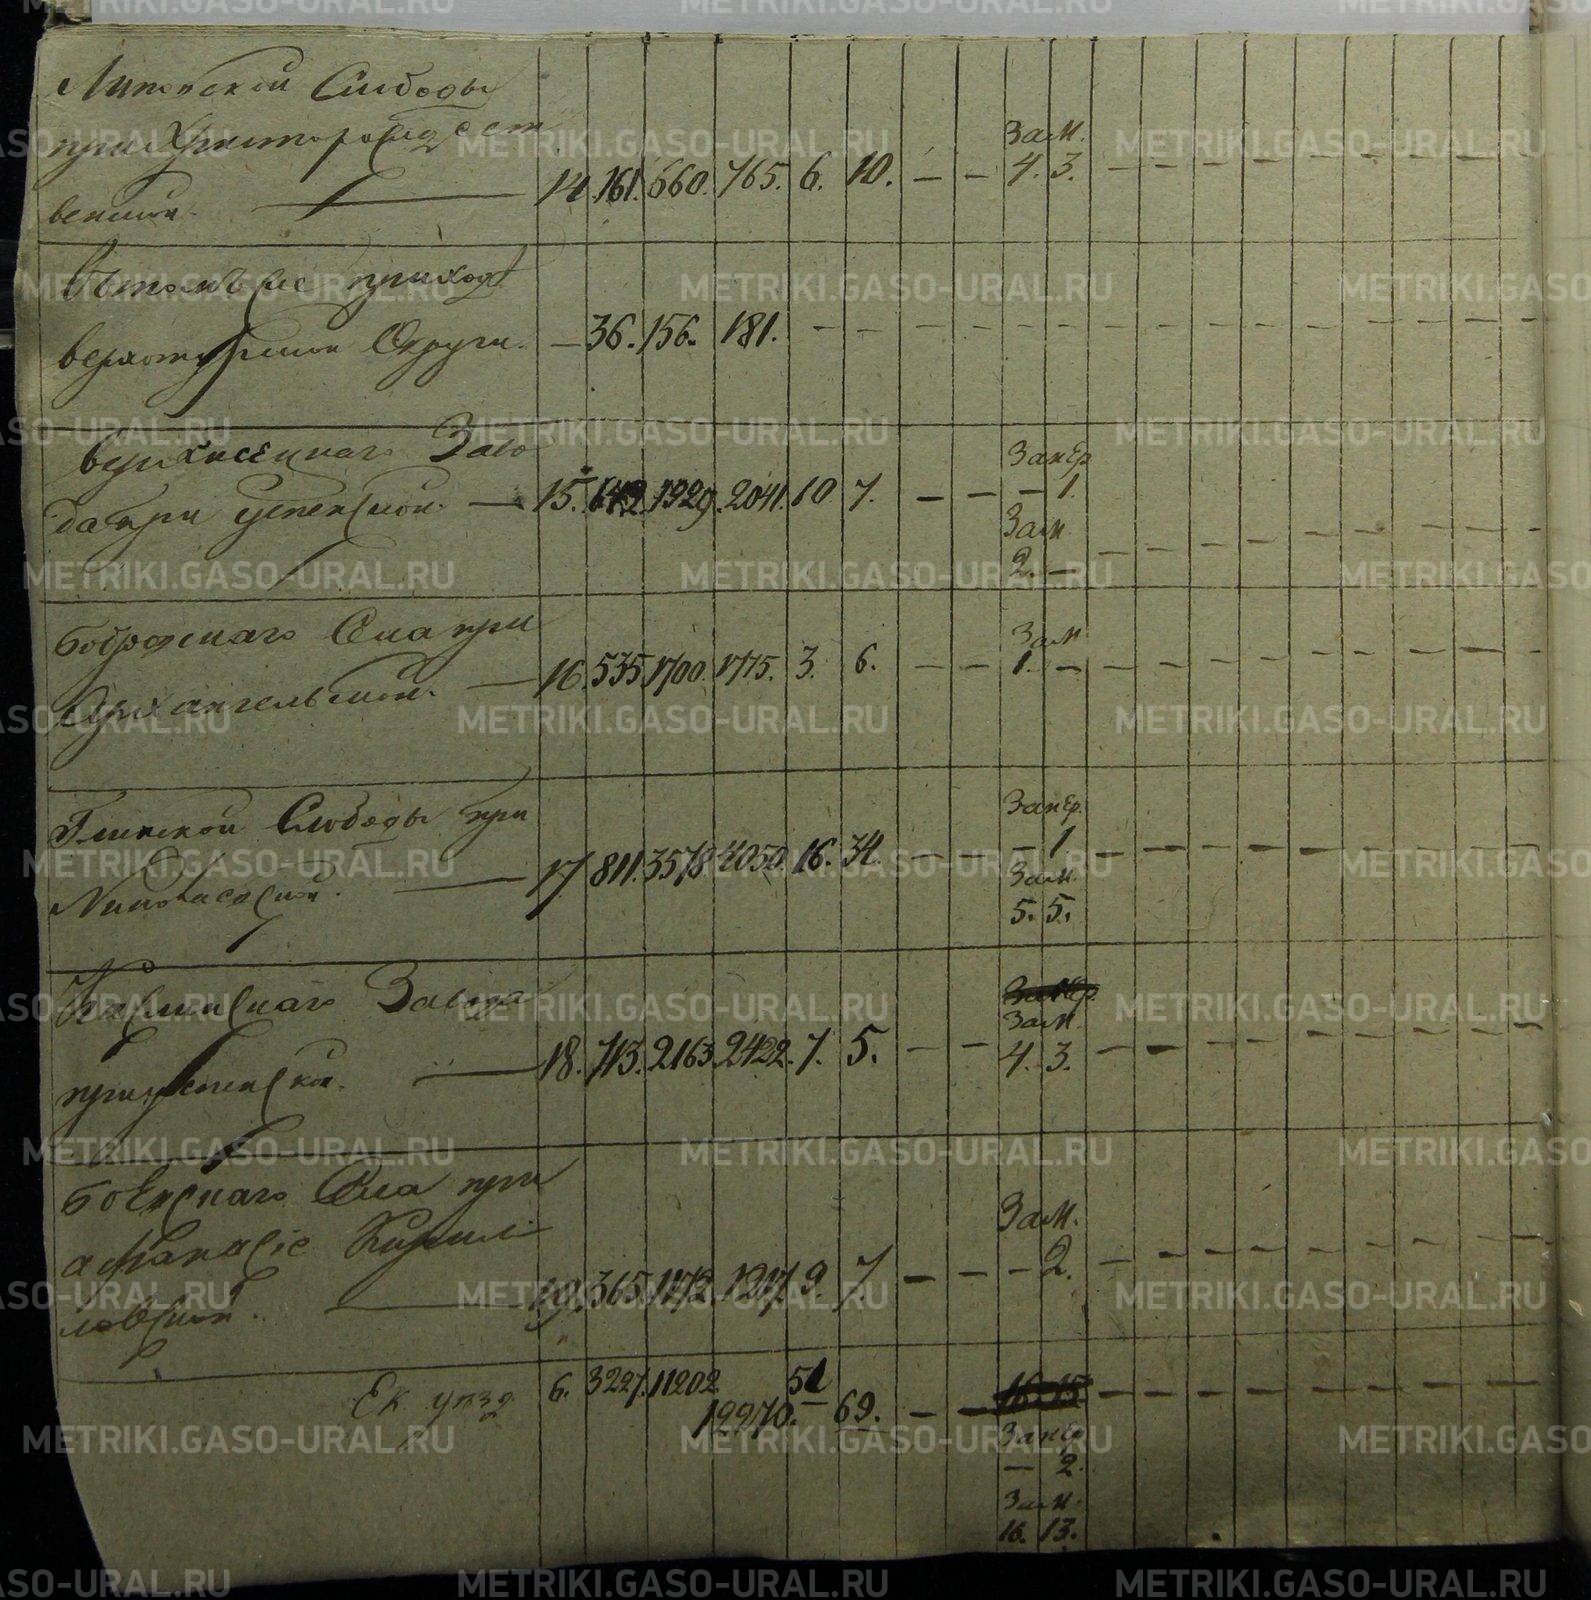 Липовской Слободы
при Христорождест
венской. — 14. 161. 660. 765. 6. 10. — — Зам. 4. 3. — — — — — — — — —
приход
верхотурской Округи. — 36. 156. 181. — — — — — — — — — — — — — —
верхисецкаго Заво
да при успенской. — 15. 642. 1929. 2041. 10 7. — — Закер — 1.
Зам 2. — — — — — — — — — —
Бобровскаго Села при
Архангельской. — 16. 535. 1700. 1775. 3. 6. — — Зам 1. — — — — — — — — — —
Глинской Слободы при
Николаевской. — 17 811. 3578 4050. 16. 34. — — Закер. — 1
Зам. 5. 5.
Каслинскаго Завода
при успенской. — 18. 713. 2163. 2422. 7. 5. — — Зам. 4. 3. — — — — — — — — —
Боевскаго Села при
афанасіе Кирил
ловской. — 19. 365. 1172. 1217. 9. 7. — — Зам. — 2. — — — — — — — — —
Ек уезд 6. 3227. 11202 12270. 51 69. — —
Закер — 2.
Зам. 16. 13.
METRIKI.GASO-URAL.RU